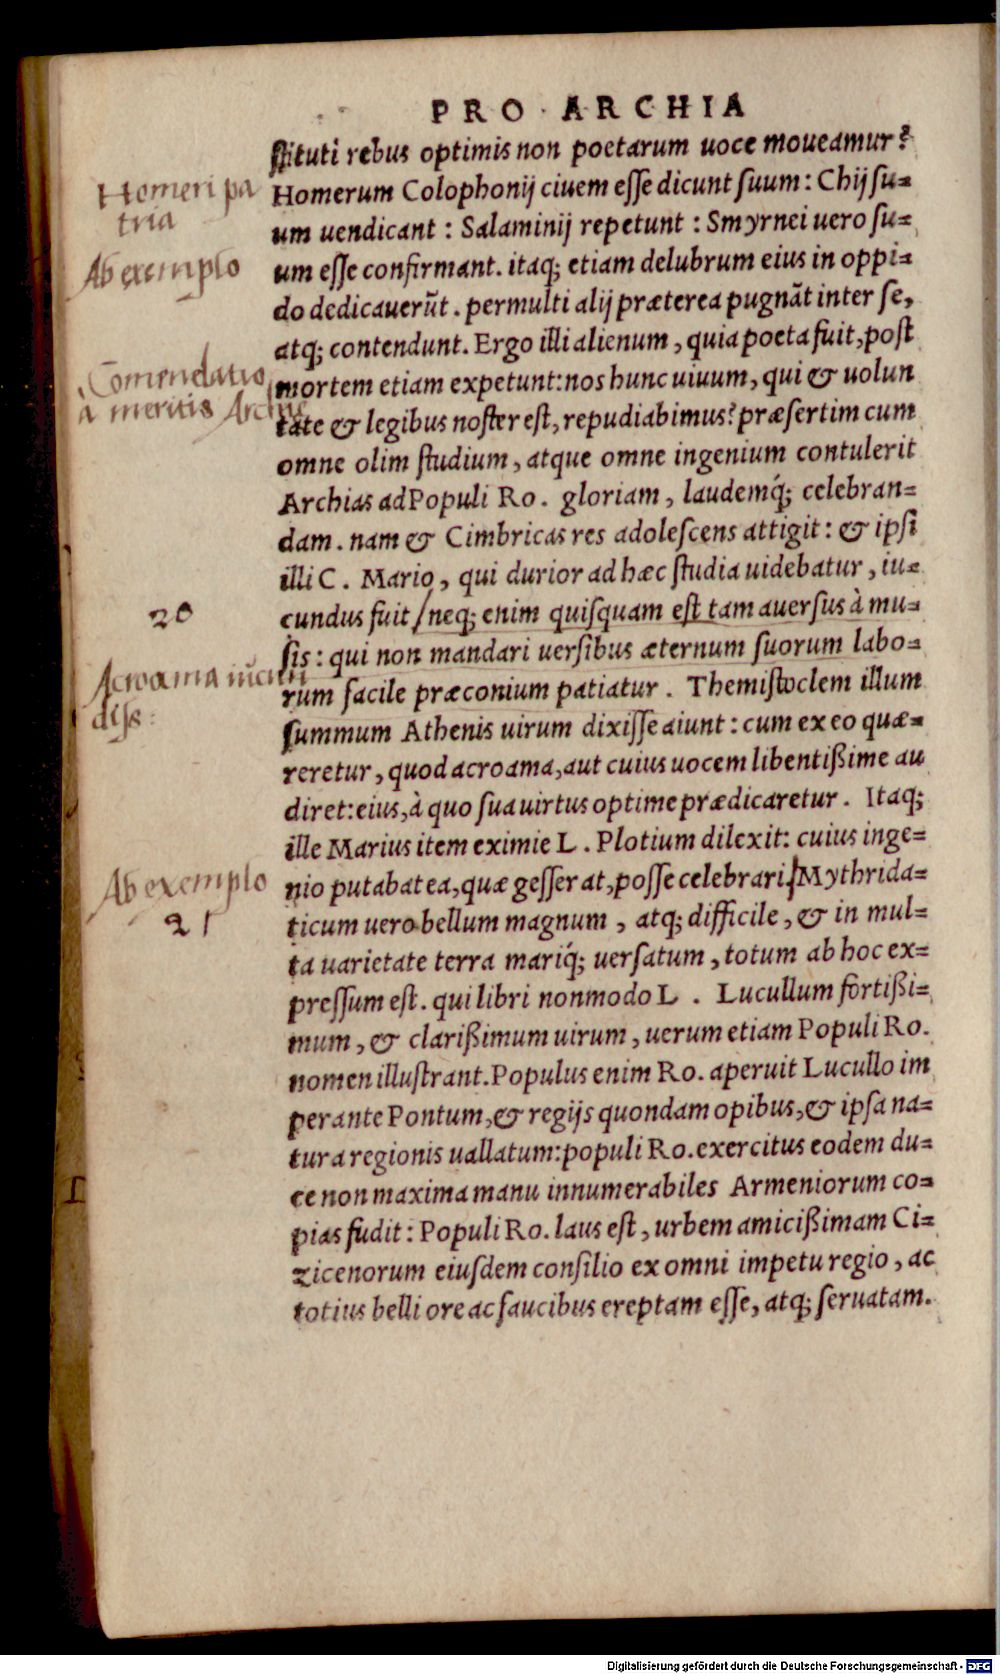 PRO ARCHIA
ſtituti rebus optimis non poetarum uoce moueamur?
Homeri pa
Homerum Colophonij ciuem eſſe dicunt ſuum: Chij ſu=
tria
um uendicant: Salaminij repetunt: Smyrnei uero ſu=
Ab exemplo
um eſſe confirmant. itaq; etiam delubrum eius in oppi=
do dedicauerūt. permulti alij præterea pugnāt inter ſe,
atq; contendunt. Ergo illi alienum, quia poeta fuit, poſt
Comendatio
mortem etiam expetunt: nos hunc uiuum, qui & uolun
à meritis Archiæ
tate & legibus noſter eſt, repudiabimus? præſertim cum
omne olim ſtudium, atque omne ingenium contulerit
Archias ad Populi Ro. gloriam, laudemq́; celebran=
dam. nam & Cimbricas res adoleſcens attigit: & ipſi
illi C. Mario, qui durior ad hæc ſtudia uidebatur, iu=
20
cundus fuit / neq; enim quiſquam eſt tam auerſus à mu=
ſis: qui non mandari uerſibus æternum ſuorum labo=
Acroama iucun
rum facile præconium patiatur. Themiſtoclem illum
diſs:
ſummum Athenis uirum dixiſſe aiunt: cum ex eo quæ=
reretur, quod acroama, aut cuius uocem libentißime au
diret: eius, à quo ſua uirtus optime prædicaretur. Itaq;
ille Marius item eximie L. Plotium dilexit: cuius inge=
Ab exemplo
nio putabat ea, quæ geſſerat, poſſe celebrari. / Mythrida=
21
ticum uero bellum magnum, atq; difficile, & in mul=
ta uarietate terra mariq́; uerſatum, totum ab hoc ex=
preſſum eſt. qui libri nonmodo L. Lucullum fortißi=
mum, & clarißimum uirum, uerum etiam Populi Ro.
nomen illuſtrant. Populus enim Ro. aperuit Lucullo im
perante Pontum, & regijs quondam opibus, & ipſa na=
tura regionis uallatum: populi Ro. exercitus eodem du=
ce non maxima manu innumerabiles Armeniorum co=
pias fudit: Populi Ro. laus eſt, urbem amicißimam Ci=
zicenorum eiuſdem conſilio ex omni impetu regio, ac
totius belli ore ac faucibus ereptam eſſe, atq; ſeruatam.
Digitalisierung gefördert durch die Deutsche Forschungsgemeinschaft - DFG